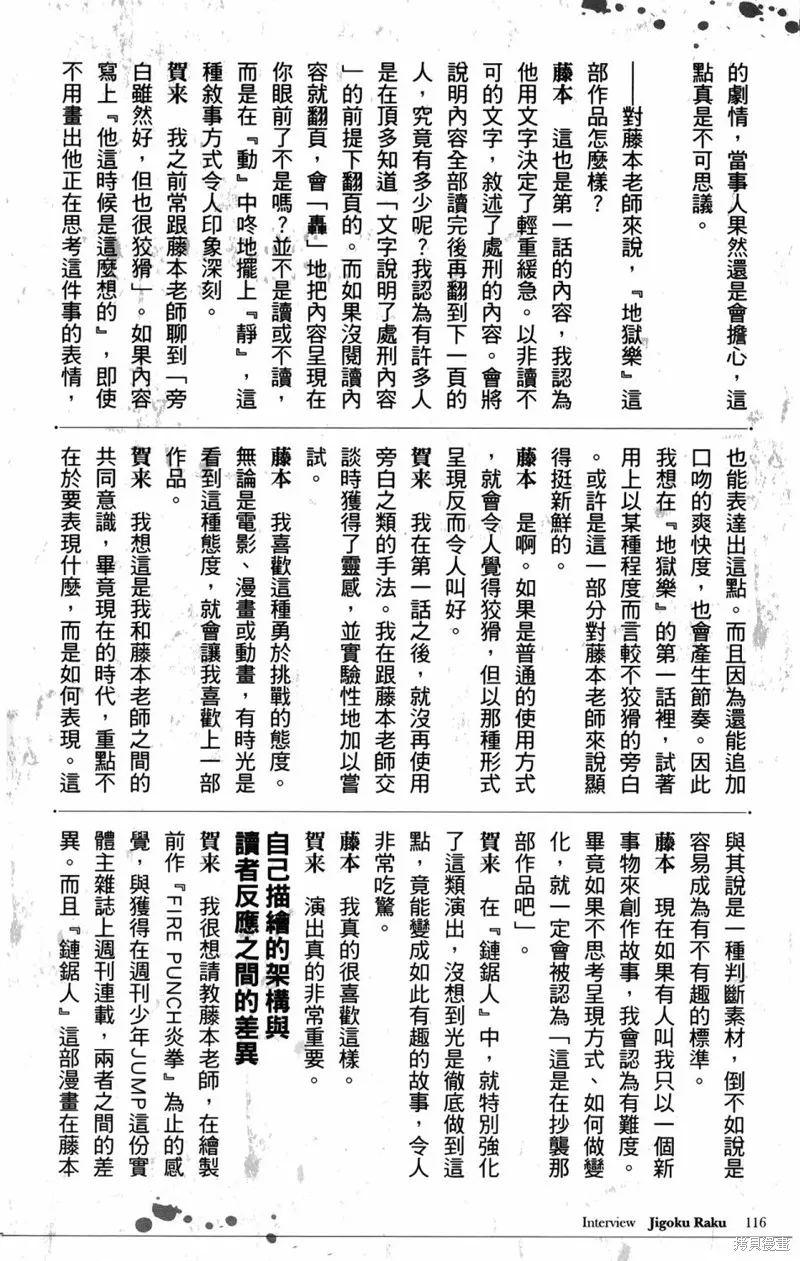 的劇情，當事人果然還是會擔心，這
點真是不可思議。
——對藤本老師來說，『地獄樂』這
部作品怎麼樣？
藤本　這也是第一話的內容，我認為
他用文字決定了輕重緩急。以非讀不
可的文字，敘述了處刑的內容。會將
說明內容全部讀完後再翻到下一頁的
人，究竟有多少呢？我認為有許多人
是在頂多知道「文字說明了處刑內容
」的前提下翻頁的。而如果沒閱讀內
容就翻頁，會「轟」地把內容呈現在
你眼前了不是嗎？並不是讀或不讀，
而是在『動』中咚地擺上『靜』，這
種敘事方式令人印象深刻。
賀来　我之前常跟藤本老師聊到「旁
白雖然好，但也很狡猾」。如果內容
寫上『他這時候是這麼想的』，即使
不用畫出他正在思考這件事的表情，
也能表達出這點。而且因為還能追加
口吻的爽快度，也會產生節奏。因此
我想在『地獄樂』的第一話裡，試著
用上以某種程度而言較不狡猾的旁白
。或許是這一部分對藤本老師來說顯
得挺新鮮的。
藤本　是啊。如果是普通的使用方式
，就會令人覺得狡猾，但以那種形式
呈現反而令人叫好。
賀来　我在第一話之後，就沒再使用
旁白之類的手法。我在跟藤本老師交
談時獲得了靈感，並實驗性地加以嘗
試。
藤本　我喜歡這種勇於挑戰的態度。
無論是電影、漫畫或動畫，有時光是
看到這種態度，就會讓我喜歡上一部
作品。
賀来　我想這是我和藤本老師之間的
共同意識，畢竟現在的時代，重點不
在於要表現什麼，而是如何表現。這
與其說是一種判斷素材，倒不如說是
容易成為有不有趣的標準。
藤本　現在如果有人叫我只以一個新
事物來創作故事，我會認為有難度。
畢竟如果不思考呈現方式、如何做變
化，就一定會被認為「這是在抄襲那
部作品吧」。
賀来　在『鏈鋸人』中，就特別強化
了這類演出，沒想到光是徹底做到這
點，竟能變成如此有趣的故事，令人
非常吃驚。
藤本　我真的很喜歡這樣。
賀来　演出真的非常重要。
自己描繪的架構與
讀者反應之間的差異
賀来　我很想請教藤本老師，在繪製
前作『FIRE PUNCH炎拳』為止的感
覺，與獲得在週刊少年JUMP這份實
體主雜誌上週刊連載，兩者之間的差
異。而且『鏈鋸人』這部漫畫在藤本
Interview　Jigoku Raku　116
拷貝漫畫